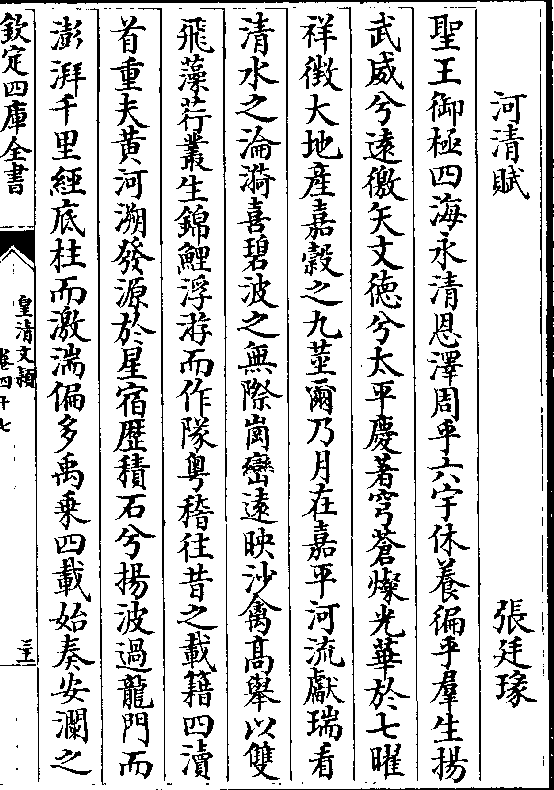 河清賦
張廷瑑
聖王御極四海永清恩澤周乎六宇休養徧乎羣生揚
武威兮遠徼矢文德兮太平慶著穹蒼燦光華於七曜
祥徴大地産嘉穀之九莖爾乃月在嘉平河流獻瑞看
清水之淪漪喜碧波之無際崗巒遠映沙禽髙舉以雙
飛藻荇叢生錦鯉浮游而作隊粤稽往昔之載籍四瀆
首重夫黄河溯發源於星宿歴積石兮揚波過龍門而
澎湃千里經底柱而激湍偏多禹乗四載始奏安瀾之
欽定四庫全書
皇清文穎
卷四十七
三十一